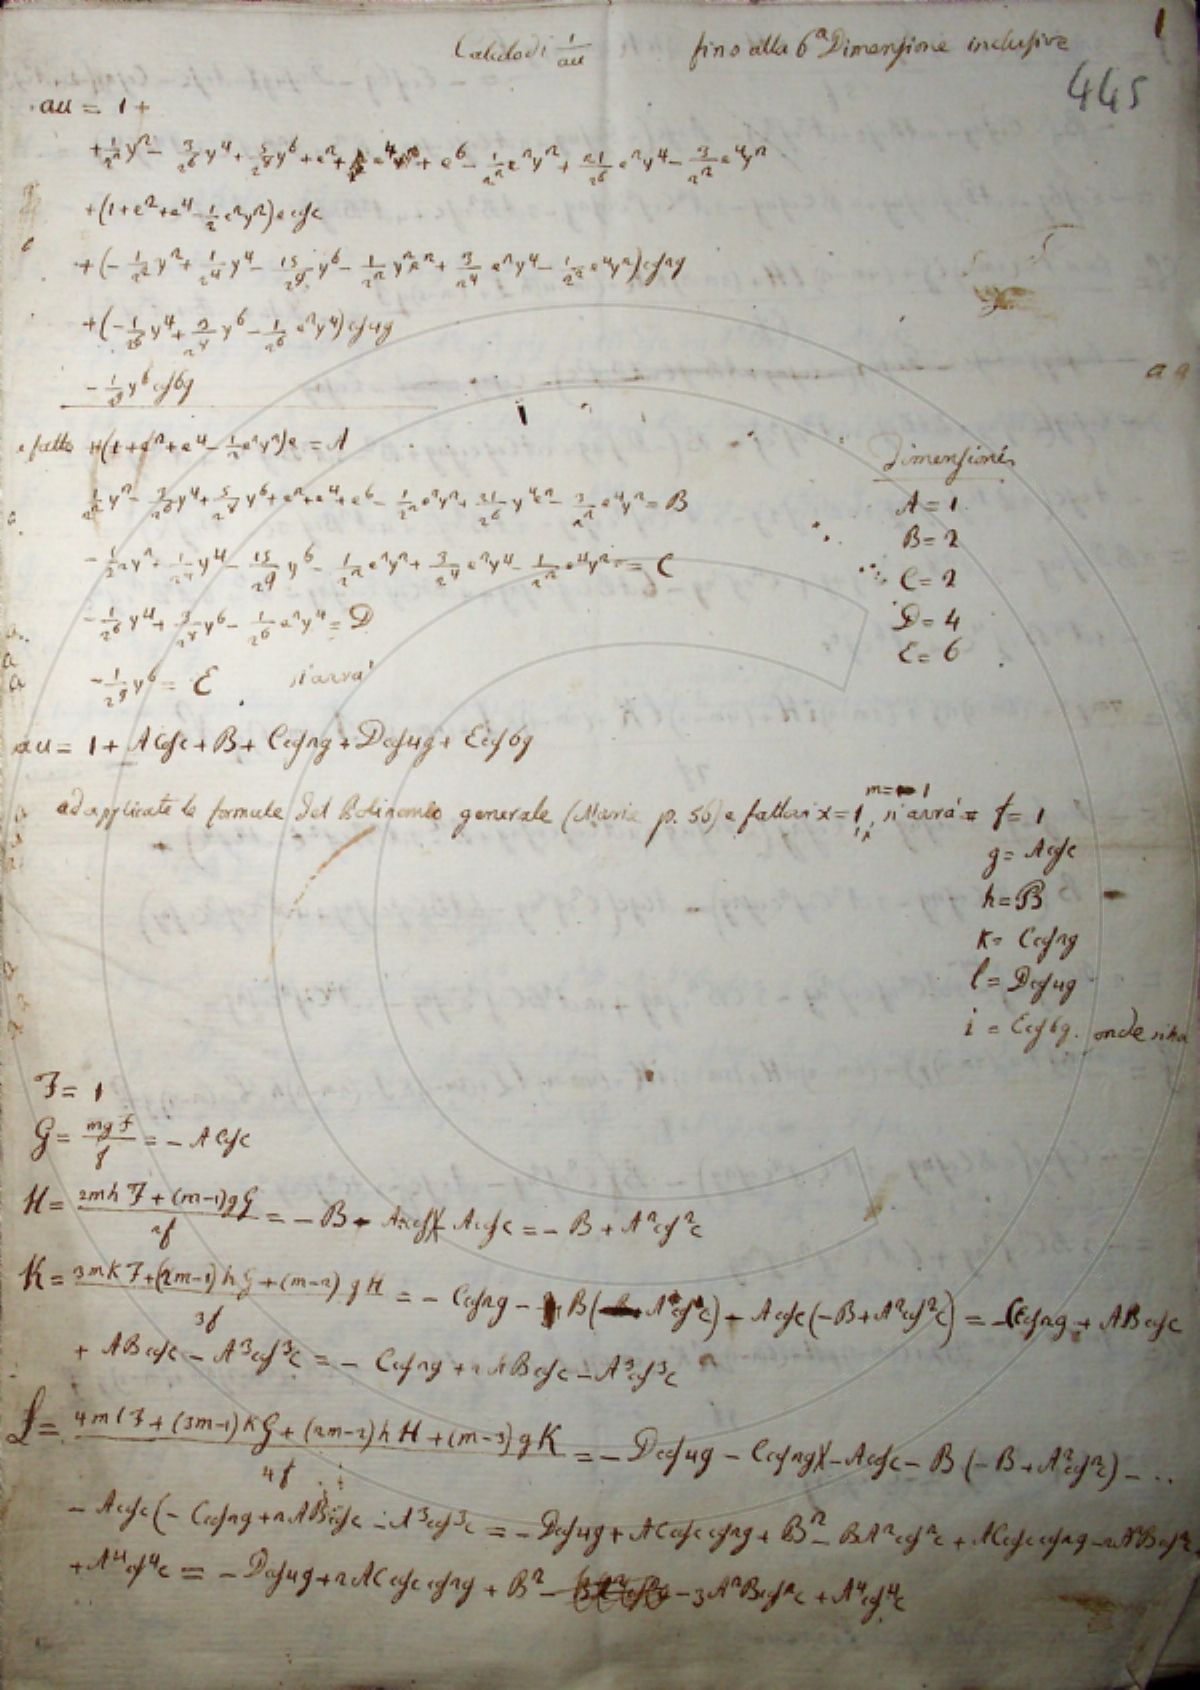 1
Calcolo di 1/au fino alla 6ª Dimensione inclusive
445
au = 1 +
+ 1/2² y² − 3/2⁶ y⁴ + 5/2⁸ y⁶ + e² + e⁴ + e⁶ − 1/2² e²y² + 21/2⁶ e²y⁴ − 3/2² e⁴y²
+ (1 + e² + e⁴ − 1/2 e²y²) e cos c
+ (− 1/2² y² + 1/2⁴ y⁴ − 15/2⁹ y⁶ − 1/2² y²e² + 3/2⁴ e²y⁴ − 1/2² e⁴y²) cos 2g
+ (− 1/2⁶ y⁴ + 3/2⁸ y⁶ − 1/2⁶ e²y⁴) cos 4g
− 1/2⁹ y⁶ cos 6g
e fatto + (1 + e² + e⁴ − 1/2 e²y²) e = A
1/2² y² − 3/2⁶ y⁴ + 5/2⁸ y⁶ + e² + e⁴ + e⁶ − 1/2² e²y² + 21/2⁶ y⁴e² − 3/2² e⁴y² = B
− 1/2² y² + 1/2⁴ y⁴ − 15/2⁹ y⁶ − 1/2² e²y² + 3/2⁴ e²y⁴ − 1/2² e⁴y² = C
− 1/2⁶ y⁴ + 3/2⁸ y⁶ − 1/2⁶ e²y⁴ = D
− 1/2⁹ y⁶ = E si avrà
Dimensioni
A = 1
B = 2
C = 2
D = 4
E = 6
au = 1 + A cos c + B + C cos 2g + D cos 4g + E cos 6g
ed applicate le formule del Polinomio generale (Marie p. 56) e fattasi x = 1, m = − 1 si avrà f = 1
g = A cos c
h = B
k = C cos 2g
l = D cos 4g
i = E cos 6g. onde si ha
F = 1
G = mgF/f = − A cos c
H = 2mhF + (m−1)gG / 2f = − B − A cos c × − A cos c = − B + A² cos² c
K = 3mkF + (2m−1)hG + (m−2)gH / 3f = − C cos 2g − B( A cos c) − A cos c (−B + A² cos² c) = − C cos 2g + AB cos c
+ AB cos c − A³ cos³ c = − C cos 2g + 2AB cos c − A³ cos³ c
L = 4mlF + (3m−1)kG + (2m−2)hH + (m−3)gK / 4f = − D cos 4g − C cos 2g × − A cos c − B (−B + A² cos² c) − ..
− A cos c (− C cos 2g + 2AB cos c − A³ cos³ c = − D cos 4g + AC cos c cos 2g + B² − BA² cos² c + AC cos c cos 2g − 2A²B cos² c
+ A⁴ cos⁴ c = − D cos 4g + 2AC cos c cos 2g + B² − 3A²B cos² c + A⁴ cos⁴ c